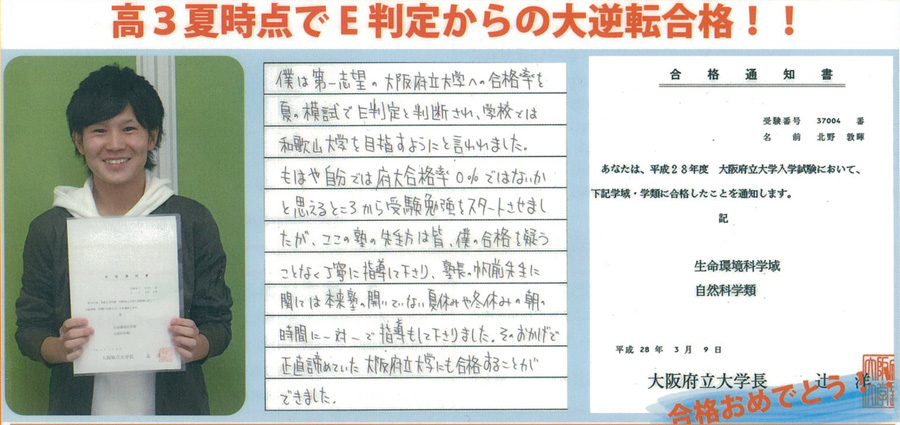 高３夏時点でＥ判定からの大逆転合格！！
僕は第一志望の大阪府立大学への合格率を
夏の模試でE判定と判断され、学校では
和歌山大学を目指すようにと言われました。
もはや自分では府大合格率0%ではないか
と思えるところから受験勉強をスタートさせまし
たが、ここの塾の先生方は皆、僕の合格を疑う
ことなく丁寧に指導して下さり、塾長の帆前先生に
関しては本来塾の開いていない夏休みや冬休みの朝の
時間に一対一で指導もして下さりました。そのおかげで
正直諦めていた大阪府立大学にも合格することが
できました。
合格通知書
受験番号 37004 番
名 前 北野 敦暉
あなたは、平成２８年度 大阪府立大学入学試験において、
下記学域・学類に合格したことを通知します。
記
生命環境科学域
自然科学類
平成 28 年 3 月 9 日
大阪府立大学長 辻 洋
合格おめでとう！